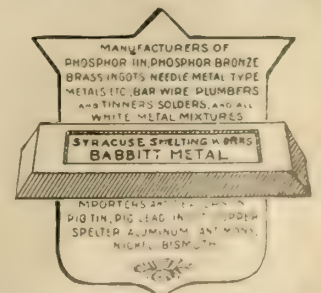 MANUFACTURERS OF
PHOSPHOR TIN, PHOSPHOR BRONZE
BRASS INGOTS NEEDLE METAL TYPE
METALS ETC, BAR WIRE PLUMBERS
AND TINNERS SOLDERS, AND ALL
WHITE METAL MIXTURES
SYRACUSE SMELTING WORKS
BABBITT METAL
IMPORTERS AND IN
PIG TIN, PIG LEAD
SPELTER ALUMINUM ANTIMONY,
NICKEL BISMUTH